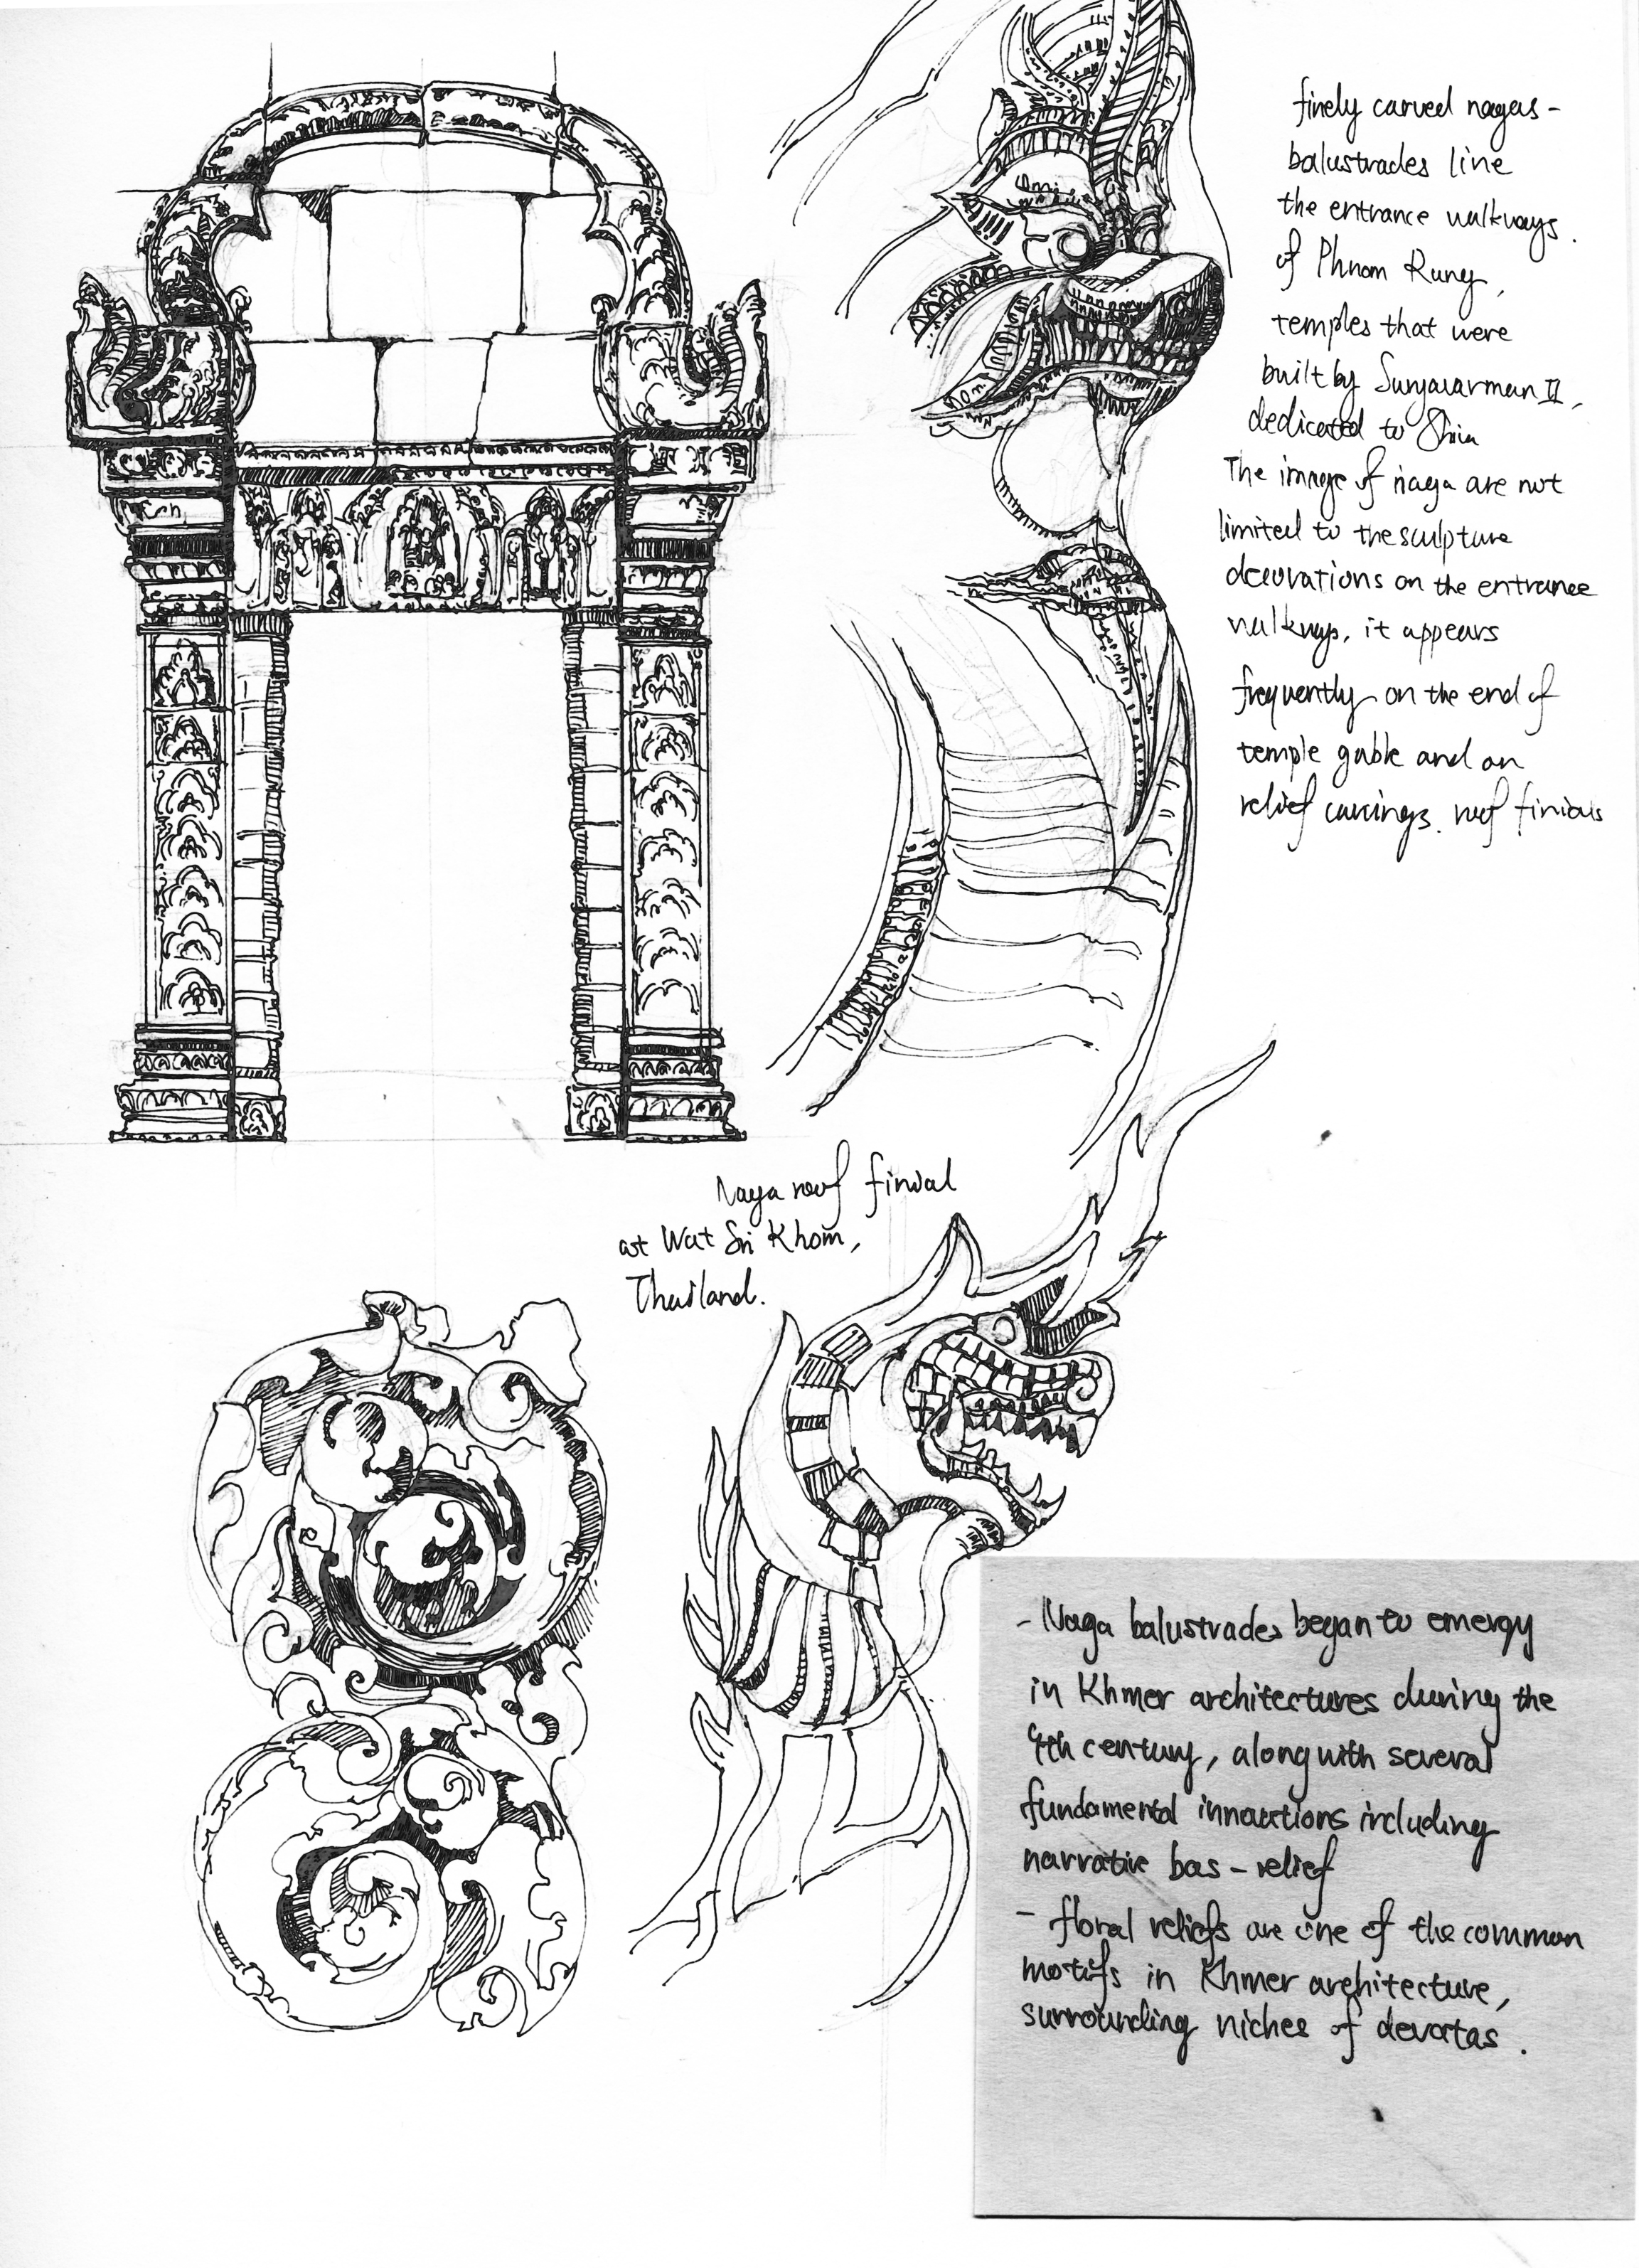 finely carved nagas -
balustrades line
the entrance walkways.
of Phnom Rung,
temples that were
built by Suryavarman II,
dedicated to Shiva
The image of naga are not
limited to the sculpture
decorations on the entrance
walkways, it appears
frequently on the end of
temple gable and on
relief carvings. roof finials
Naga roof finial
at Wat Sri Khom,
Thailand.
- Naga balustrades began to emergy
in Khmer architectures during the
9th century, along with several
fundamental innovations including
narrative bas - relief
- floral reliefs are one of the common
motifs in Khmer architecture,
surrounding niches of devatas.